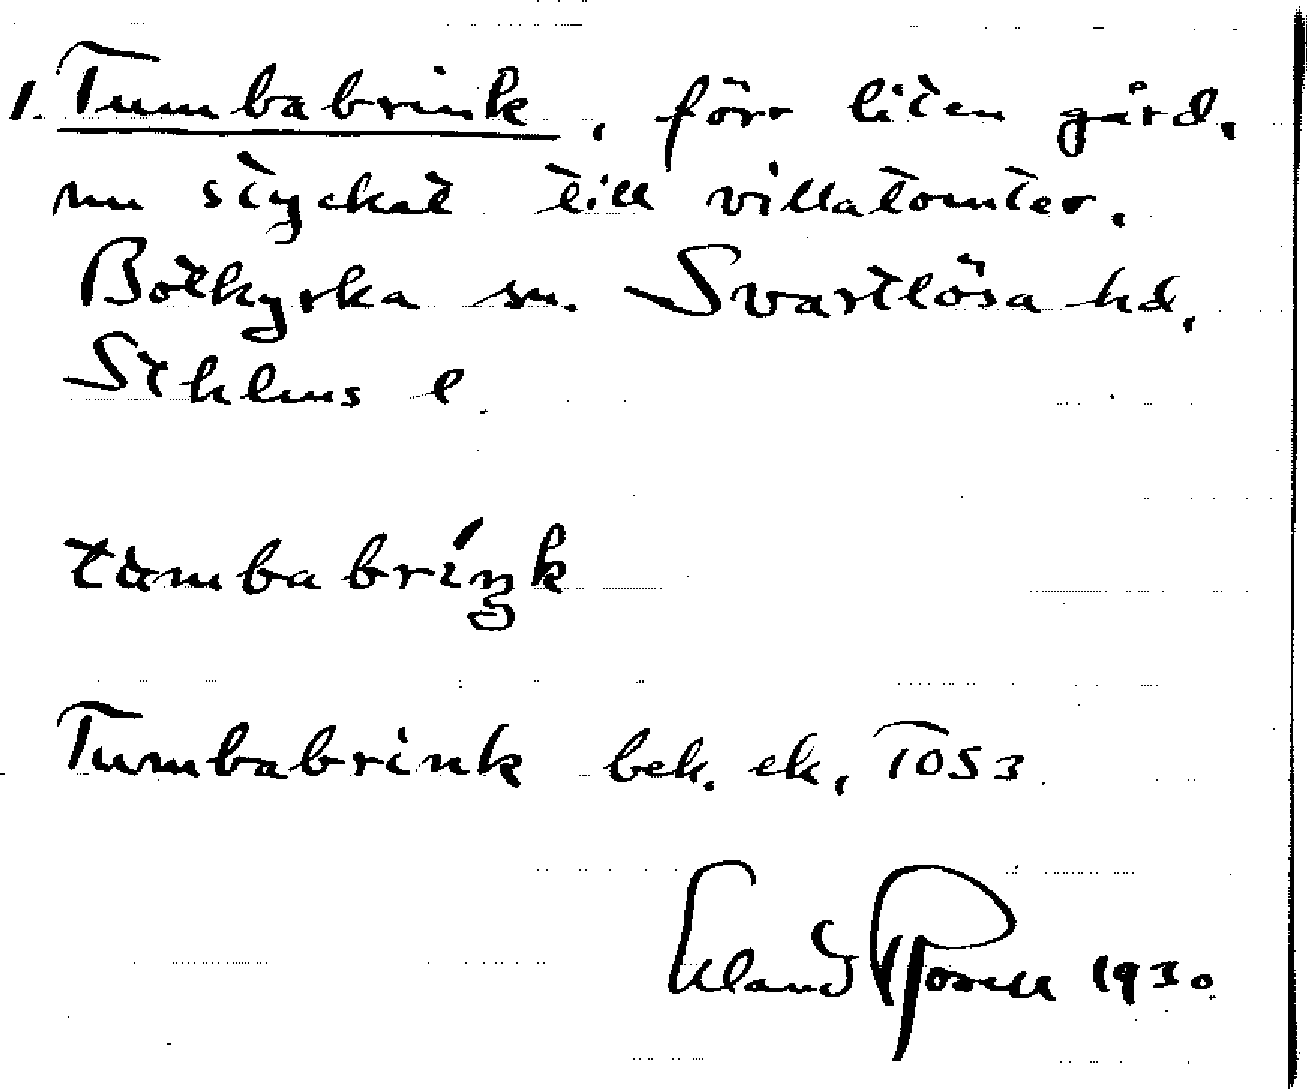 1. Tumbabrink, förr liten gård,
nu styckat till villatomter.
Botkyrka sn. Svartlösa hd,
Sthlms l.
tùmbabríŋk
Tumbabrink bek. ek, TOS3
Erland Rosell 1930